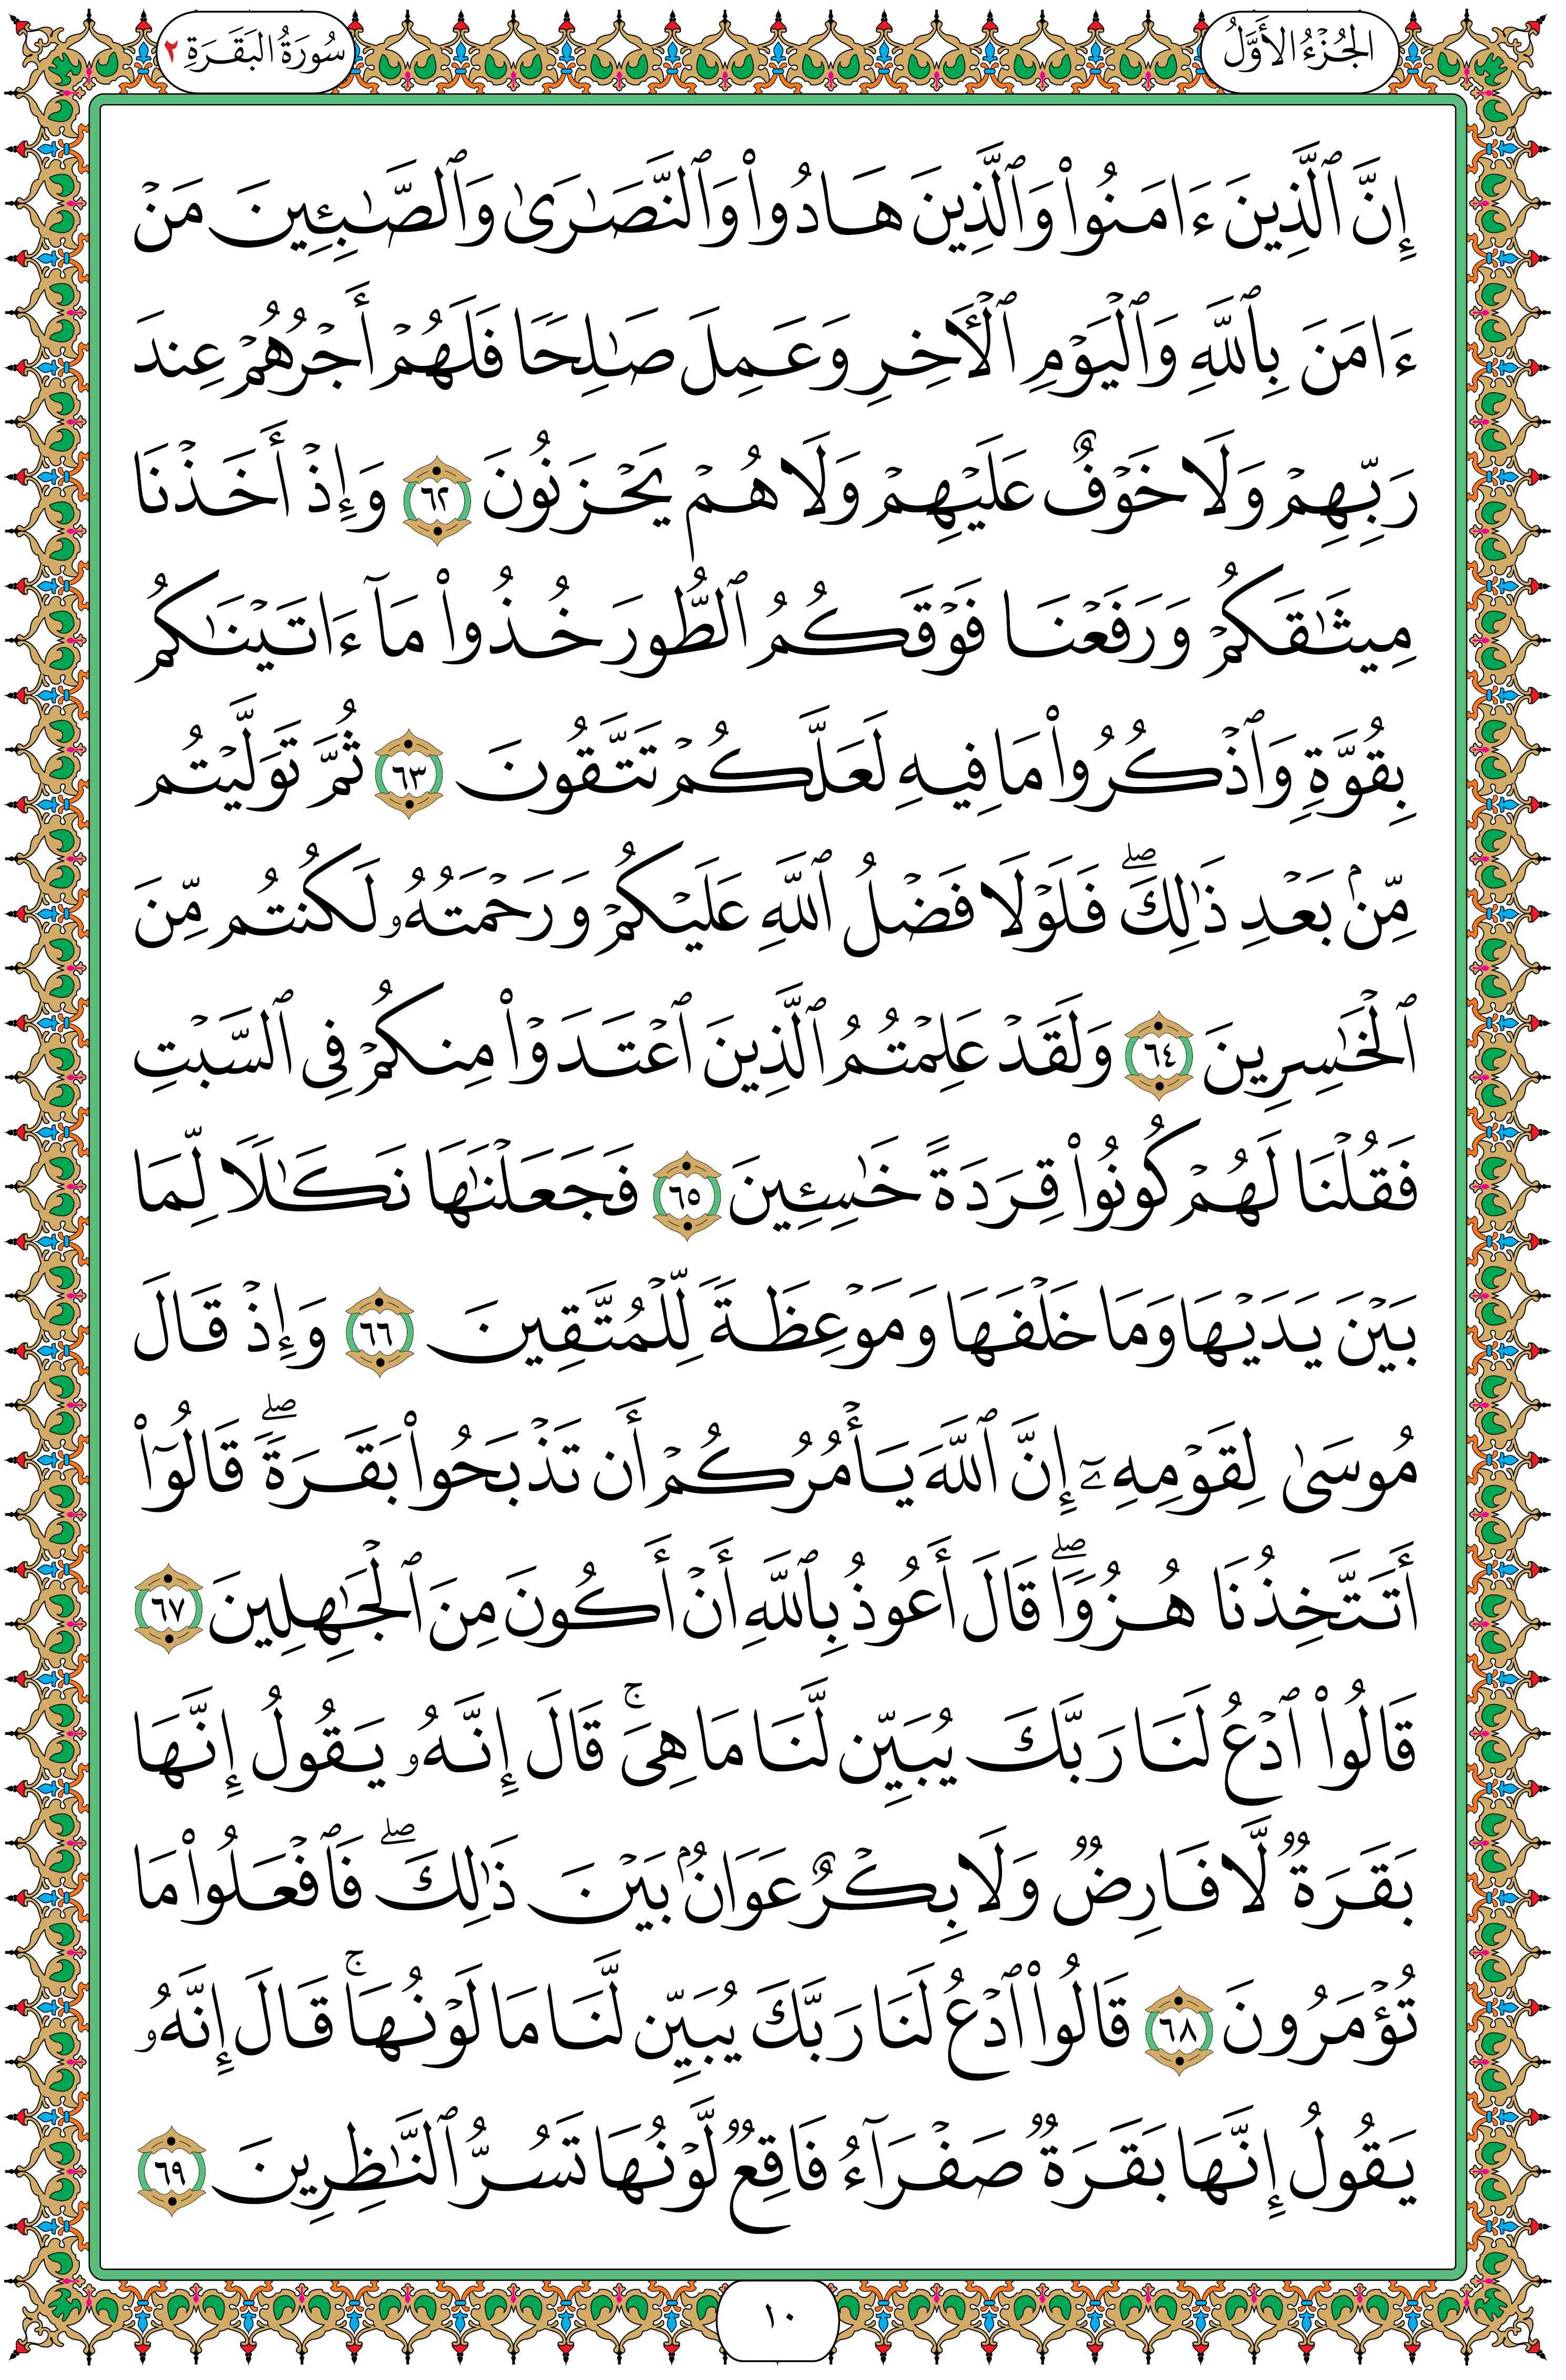 الجُزْءُ الأَوَّلُ
سُورَةُ البَقَرَةِ ٢
إِنَّ ٱلَّذِينَ ءَامَنُواْ وَٱلَّذِينَ هَادُواْ وَٱلنَّصَٰرَىٰ وَٱلصَّٰبِـِٔينَ مَنۡ
ءَامَنَ بِٱللَّهِ وَٱلۡيَوۡمِ ٱلۡأٓخِرِ وَعَمِلَ صَٰلِحٗا فَلَهُمۡ أَجۡرُهُمۡ عِندَ
رَبِّهِمۡ وَلَا خَوۡفٌ عَلَيۡهِمۡ وَلَا هُمۡ يَحۡزَنُونَ ٦٢ وَإِذۡ أَخَذۡنَا
مِيثَٰقَكُمۡ وَرَفَعۡنَا فَوۡقَكُمُ ٱلطُّورَ خُذُواْ مَآ ءَاتَيۡنَٰكُم
بِقُوَّةٖ وَٱذۡكُرُواْ مَا فِيهِ لَعَلَّكُمۡ تَتَّقُونَ ٦٣ ثُمَّ تَوَلَّيۡتُم
مِّنۢ بَعۡدِ ذَٰلِكَۖ فَلَوۡلَا فَضۡلُ ٱللَّهِ عَلَيۡكُمۡ وَرَحۡمَتُهُۥ لَكُنتُم مِّنَ
ٱلۡخَٰسِرِينَ ٦٤ وَلَقَدۡ عَلِمۡتُمُ ٱلَّذِينَ ٱعۡتَدَوۡاْ مِنكُمۡ فِي ٱلسَّبۡتِ
فَقُلۡنَا لَهُمۡ كُونُواْ قِرَدَةً خَٰسِـِٔينَ ٦٥ فَجَعَلۡنَٰهَا نَكَٰلٗا لِّمَا
بَيۡنَ يَدَيۡهَا وَمَا خَلۡفَهَا وَمَوۡعِظَةٗ لِّلۡمُتَّقِينَ ٦٦ وَإِذۡ قَالَ
مُوسَىٰ لِقَوۡمِهِۦٓ إِنَّ ٱللَّهَ يَأۡمُرُكُمۡ أَن تَذۡبَحُواْ بَقَرَةٗۖ قَالُوٓاْ
أَتَتَّخِذُنَا هُزُوٗاۖ قَالَ أَعُوذُ بِٱللَّهِ أَنۡ أَكُونَ مِنَ ٱلۡجَٰهِلِينَ ٦٧
قَالُواْ ٱدۡعُ لَنَا رَبَّكَ يُبَيِّن لَّنَا مَا هِيَۚ قَالَ إِنَّهُۥ يَقُولُ إِنَّهَا
بَقَرَةٞ لَّا فَارِضٞ وَلَا بِكۡرٌ عَوَانُۢ بَيۡنَ ذَٰلِكَۖ فَٱفۡعَلُواْ مَا
تُؤۡمَرُونَ ٦٨ قَالُواْ ٱدۡعُ لَنَا رَبَّكَ يُبَيِّن لَّنَا مَا لَوۡنُهَاۚ قَالَ إِنَّهُۥ
يَقُولُ إِنَّهَا بَقَرَةٞ صَفۡرَآءُ فَاقِعٞ لَّوۡنُهَا تَسُرُّ ٱلنَّٰظِرِينَ ٦٩
١٠